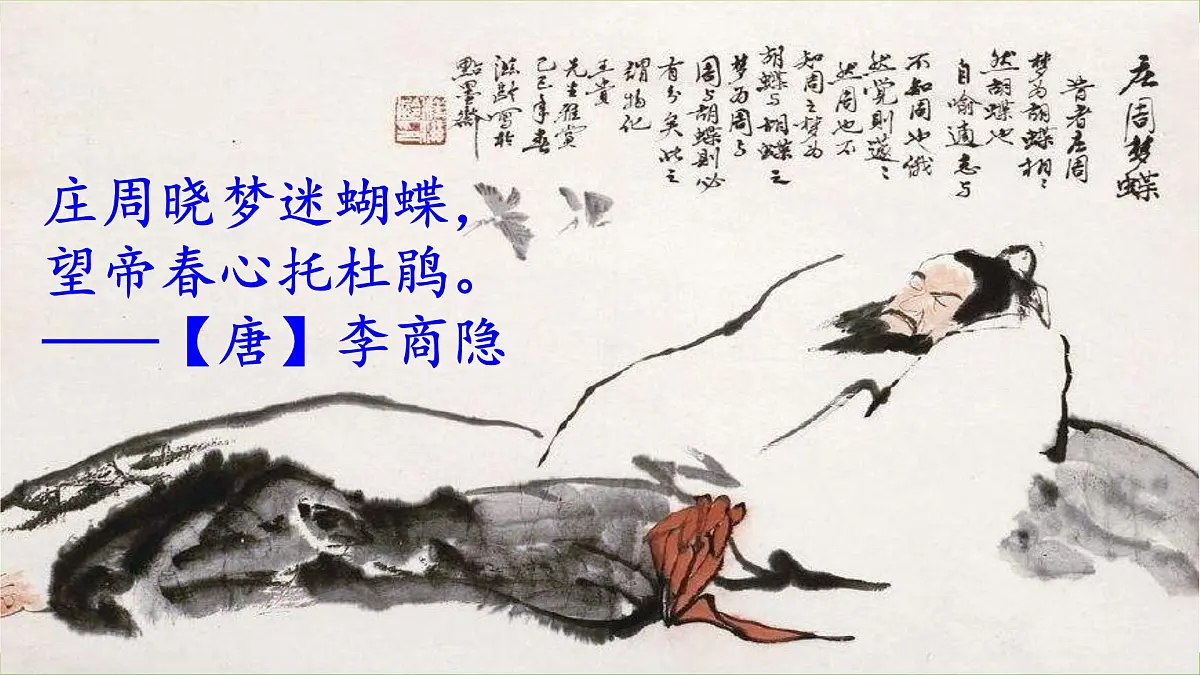 庄周梦蝶
昔者庄周
梦为胡蝶栩々
然胡蝶也
自喻適志与
不知周也俄
然觉則遽々
然周也不
知周之梦为
胡蝶与胡蝶之
梦为周与
周与胡蝶則必
有分矣此之
谓物化
先生雅赏
己巳年春
写於
點墨齋
庄周晓梦迷蝴蝶，
望帝春心托杜鹃。
——【唐】李商隐